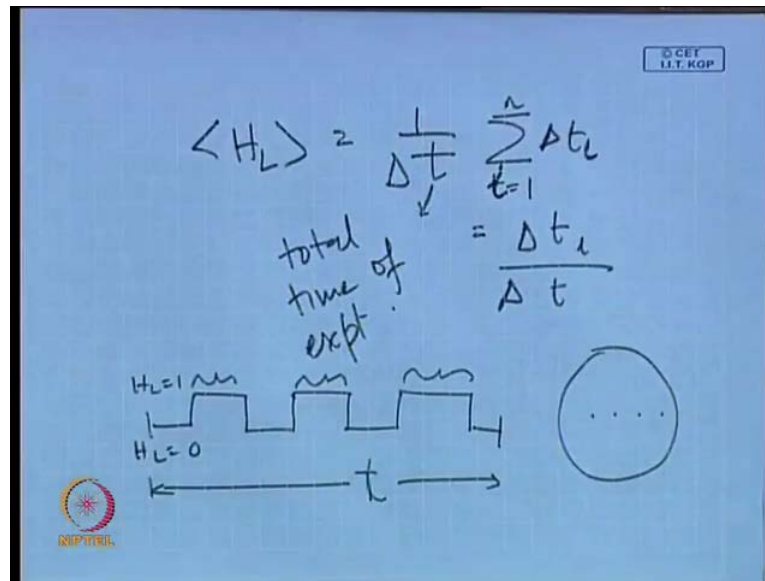 © CET
I.I.T. KGP
<H_L> = 1/Δt Σ_{t=1}^{n} Δt_L
total time of expt.
= Δt_L / Δt
H_L=1
H_L=0
t
NPTEL